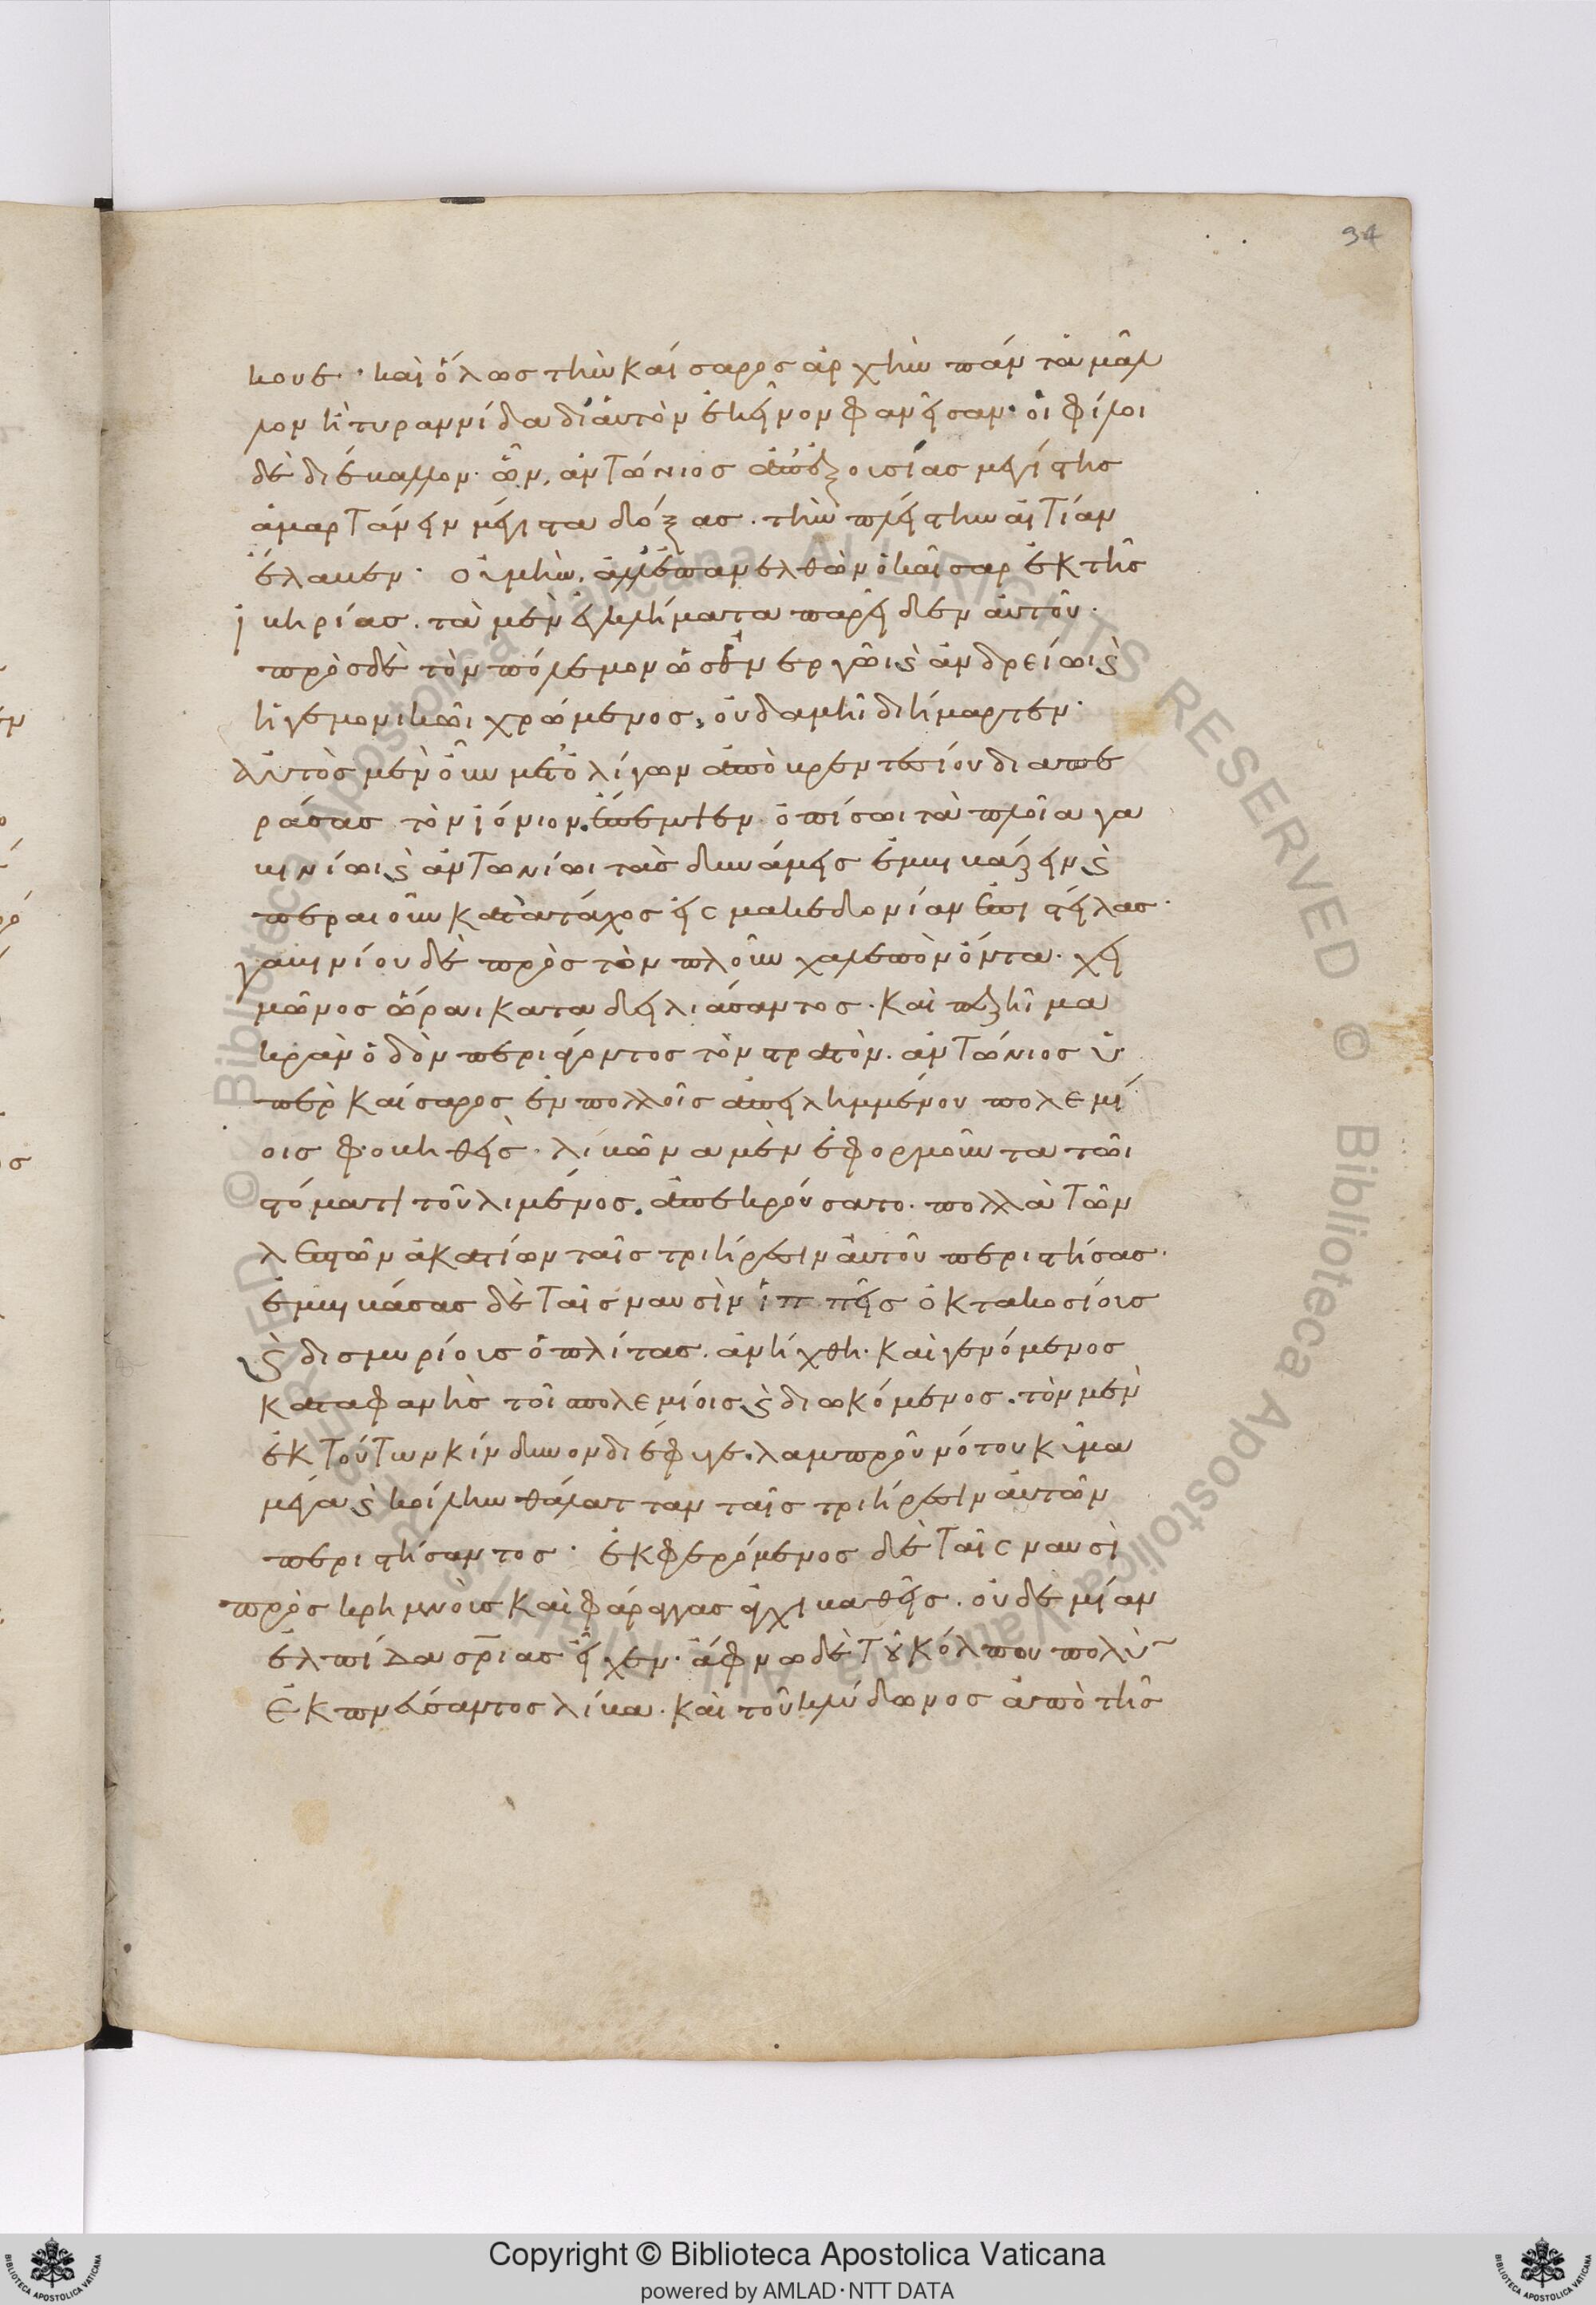 κουε· καὶ ὅλως τὴν καίσαρος ἀρχὴν πάντα μᾶλ
λον ἢ τυραννίδα δι' ἀυτὸν ἐκεῖνον φανεῖσαν· οἱ φίλοι
δὲ διέβαλλον· ὧν, ἀντώνιος ἀπ' ἐξουσίας μεγίστης
ἁμαρτάνειν μέγιστα δόξας. τὴν πλείστην αἰτίαν
ἔλαβεν· οὐ μὴν, ἀλλ' ἐπανελθὼν ὁ καῖσαρ ἐκ τῆς
ἰβηρίας. τὰ μὲν ἐγκλήματα παρεῖδεν ἀυτοῦ·
πρὸς δὲ τὸν πόλεμον ὡς ἐνεργῶι ϗ ἀνδρείωι ϗ
ἡγεμονικῶι χρώμενος, οὐδαμῆ διήμαρτεν·
ἀυτὸς μὲν οὖν μετ' ὀλίγων ἀπὸ βρεντεσίου διαπε
ράσας τὸν ἰόνιον. ἔπεμψεν ὀπίσωι τὰ πλοῖα γα
βινίωι ϗ ἀντωνίωι τὰς δυνάμεις ἐμβιβάζειν ϗ
περαιοῦν κατὰ τάχος εἰς μακεδονίαν ἐπιστείλας·
γαβινίου δὲ πρὸς τὸν πλοῦν χαλεπὸν ὄντα· χει
μῶνος ὥραι καταδειλιάσαντος· καὶ πεζῆ μα
κρὰν ὁδὸν περιάγοντος τὸν στρατὸν. ἀντώνιος ὑ
πὲρ καίσαρος ἐν πολλοῖς ἀπειλημμένου πολεμί
οις φοβηθεὶς· λίβωνα μὲν ἐφορμοῦντα τῶι
στόματι τοῦ λιμένος. ἀπεκρούσατο. πολλὰ τῶν
λεπτῶν ἀκατίων ταῖς τριήρεσιν ἀυτοῦ περιστήσας·
ἐμβιβάσας δὲ ταῖς ναυσὶν ἱππεῖς ὀκτακοσίους
ϗ δισμυρίους ὁπλίτας. ἀνήχθη. καὶ γενόμενος
καταφανὴς τοῖ πολεμίοις ϗ διωκόμενος. τὸν μὲν
ἐκ τούτων κίνδυνον διέφυγε. λαμπροῦ νότου κῦμα
μέγα ϗ κοίλην θάλατταν ταῖς τριήρεσιν ἀυτῶν
περιστήσαντος· ἐκφερόμενος δὲ ταῖς ναυσὶ
πρὸς κρημνοὺς καὶ φάραγγας ἀγχιβαθεῖς. οὐδεμίαν
ἐλπίδα σρίας εἶχεν· ἄφνω δὲ τοῦ κόλπου πολὺν
ἐκπνεύσαντος λίβα. καὶ τοῦ κλύδωνος ἀπὸ τῆς